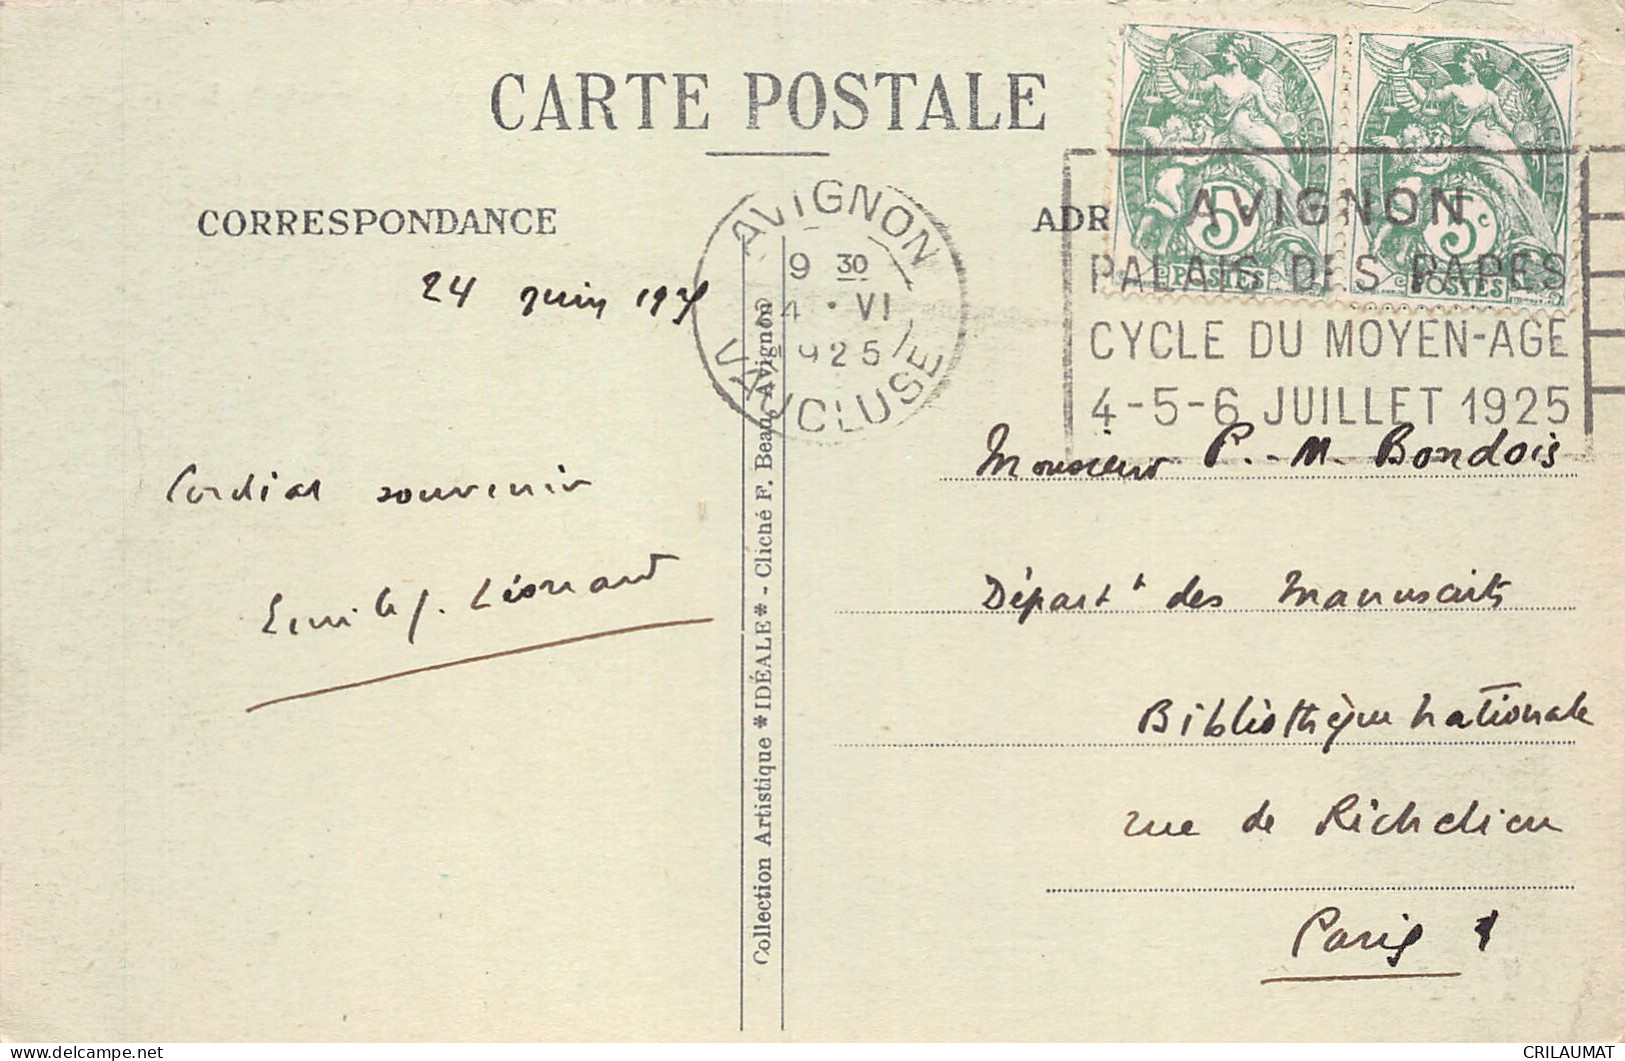 CARTE POSTALE
CORRESPONDANCE
ADR
AVIGNON
9 30
24 · VI
1925
VAUCLUSE
FRANÇAISE
5c 5c
POSTES POSTES
AVIGNON
PALAIS DES PAPES
CYCLE DU MOYEN-AGE
4-5-6 JUILLET 1925
24 juin 1925
Cordial souvenir
Emile J. Léonard
Collection Artistique *IDÉALE* - Cliché F. Beau, Avignon
Monsieur P.-M. Bondois
Départt des Manuscrits
Bibliothèque Nationale
rue de Richelieu
Paris
CRILAUMAT